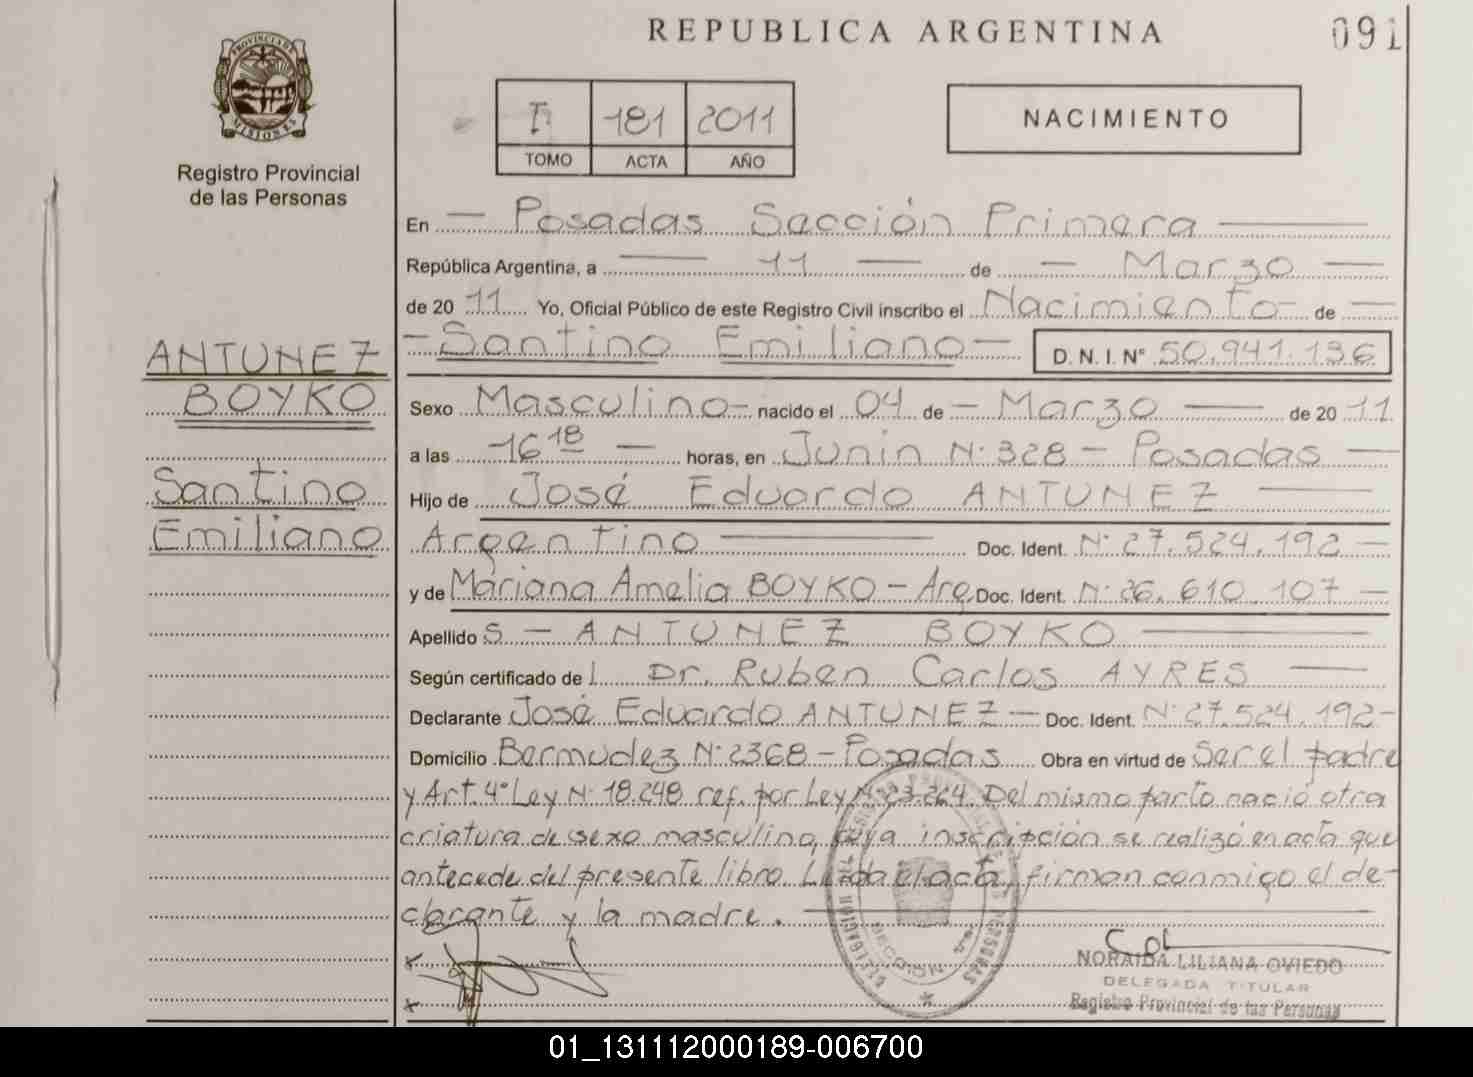 REPUBLICA ARGENTINA
091
PROVINCIA DE
MISIONES
Registro Provincial
de las Personas
181 2011
TOMO ACTA AÑO
NACIMIENTO
En — Posadas Sección Primera —
República Argentina, a — 11 — de — Marzo —
de 20 11 Yo, Oficial Público de este Registro Civil inscribo el Nacimiento- de —
- Santino Emiliano - D. N. I. N° 50.941.136
ANTUNEZ
BOYKO
Santino
Emiliano
Sexo Masculino- nacido el 04 de - Marzo — de 20 11
a las -16 18 — horas, en Junin N° 328 - Posadas —
Hijo de José Eduardo ANTUNEZ —
Argentino — Doc. Ident. N° 27.524.192 —
y de Mariana Amelia BOYKO - Arg Doc. Ident. N° 26.610.107 —
Apellido S - ANTUNEZ BOYKO —
Según certificado de l Dr. Ruben Carlos AYRES —
Declarante José Eduardo ANTUNEZ - Doc. Ident. N° 27.524.192-
Domicilio Bermudez N° 2368 - Posadas Obra en virtud de Ser el padre
y Art. 4° Ley N° 18.248 ref. por Ley N° 23.264. Del mismo parto nació otra
criatura de sexo masculino, cuya inscripción se realizó en acta que
antecede del presente libro. Leída el acta, firman conmigo el de-
clarante y la madre. —
NORAIDA LILIANA OVIEDO
DELEGADA TITULAR
Registro Provincial de las Personas
01_131112000189-006700